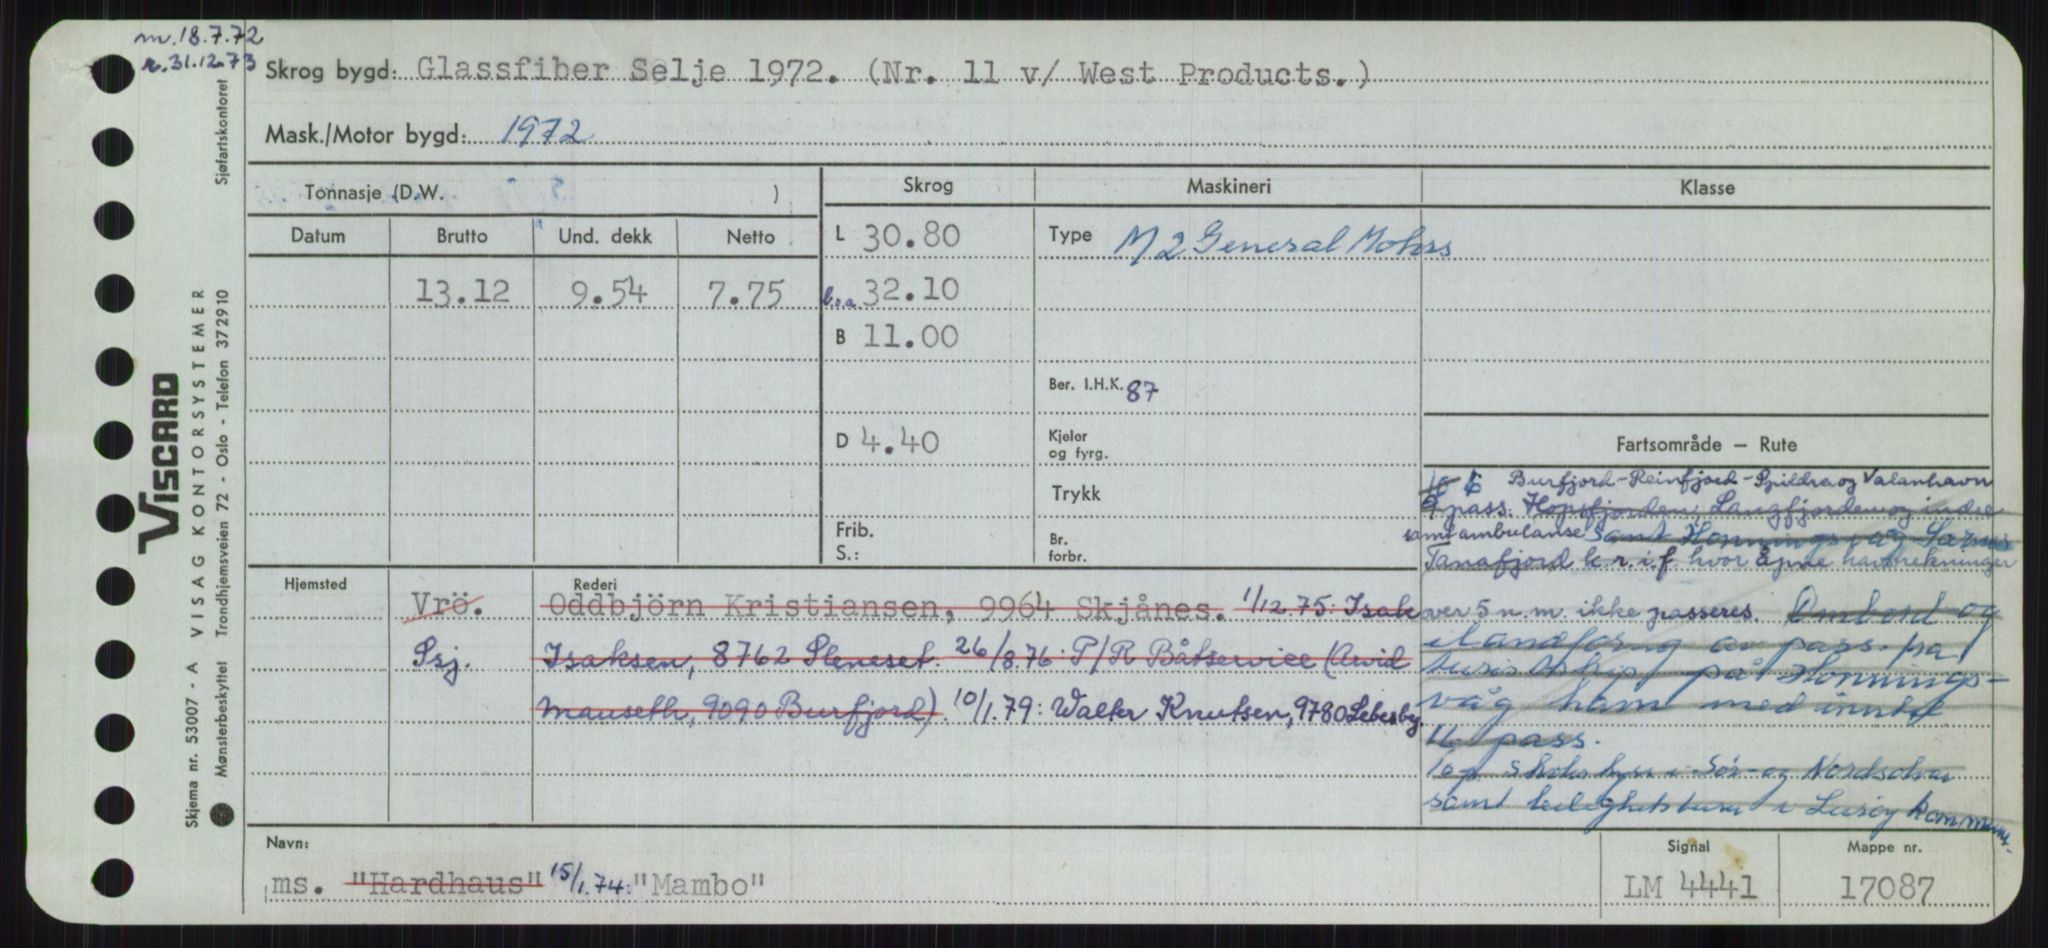 m. 18.7.72
r. 31.12.73
Skrog bygd: Glassfiber Selje 1972. (Nr. 11 v/ West Products.)
Mask./Motor bygd: 1972
Tonnasje (D.W. )
Skrog
Maskineri
Klasse
Datum
Brutto
Und. dekk
Netto
L 30.80
Type M 2 General Motors
13.12
9.54
7.75
l.o.a. 32.10
B 11.00
Ber. I.H.K. 87
D 4.40
Kjeler
og fyrg.
Trykk
Frib.
S.:
Br.
forbr.
Fartsområde — Rute
Burfjord-Reinfjord-Spildra og Valanhavn
9 pass. Hopsfjorden, Langfjorden og indre
samt ambulanse samt Honningsvåg
Tanafjord k.r.i.f. hvor åpne havstrekninger
over 5 n.m. ikke passeres. Ombord og
ilandføring av pass. fra
turistskip på Honnings-
våg havn med inntil
pass.
10 p. i Sør- og Nord
samt leilighetsturer i Lurøy kommune.
Hjemsted
Rederi
Vrö. Oddbjörn Kristiansen, 9964 Skjånes. 1/12.75: Isak
Ssj. Isaksen, 8762 Sleneset. 26/8.76: P/R Båtservice (Arvid
Mauseth, 9090 Burfjord). 10/1.79: Walter Knutsen, 9780 Lebesby
Navn:
ms. "Hardhaus" 15/1.74: "Mambo"
Signal
LM 4441
Mappe nr.
17087
VISCARD
Skjema nr. 53007 - A VISAG KONTORSYSTEMER
Mønsterbeskyttet Trondhjemsveien 72 - Oslo - Telefon 372910
Sjøfartskontoret